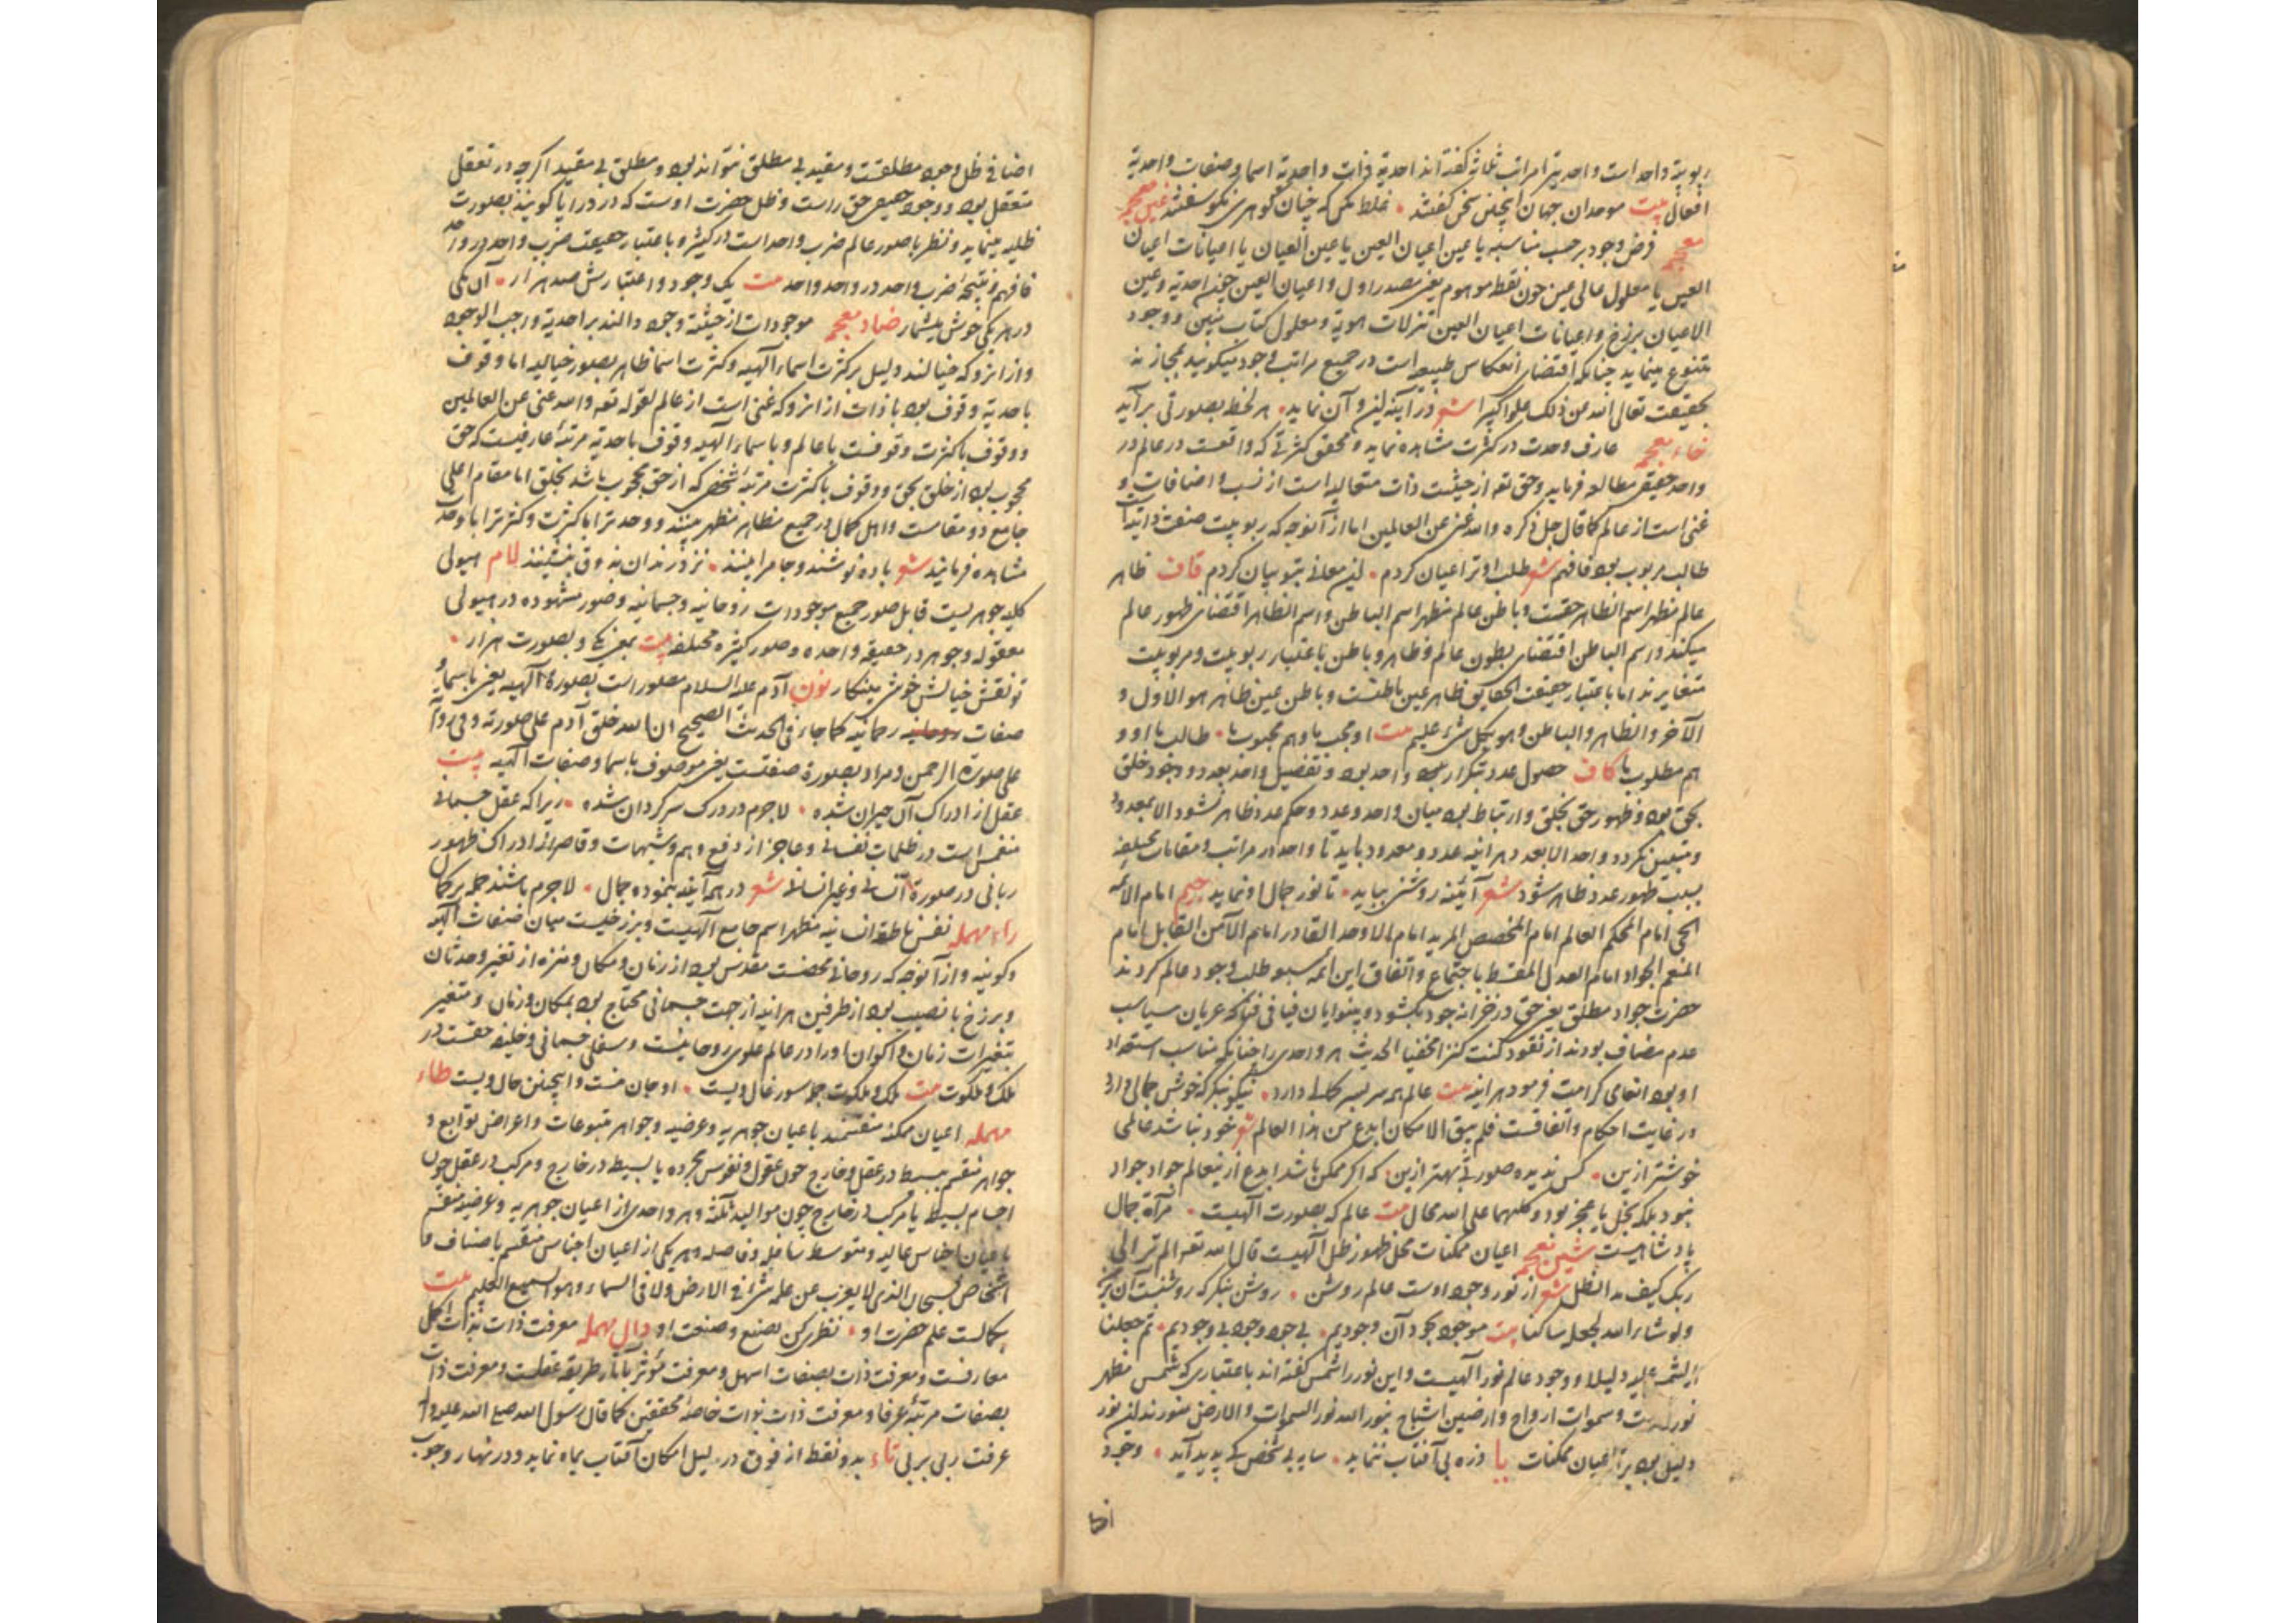 ربوبیة واحد است واحدیترا مراتب ثلاثه گفته اند احدیة ذات واحدیة اسما و صفات واحدیة
افعال بیت موحدان جهان اینچنین سخن گفتند غلط مکن که چنان گوهری نکو سفتند عین معجمه
فرض وجود برحسب مناسبه یا عین اعیان العین یا عین العیان یا اعیانات اعیان
العین یا معلول عالی عین چون نقطه موهوم یعنی مصدر اول و اعیان العین احدیة وعین
الاعیان برزخ و اعیانات اعیان العین تنزلات هویة و معلول کتاب مبین و وجود
متنوع مینماید چنانکه اقتضاء انعکاس طبیعه است در جمیع مراتب وجود میگویند بمجاز نه
بحقیقت تعالی الله عن ذلک علوا کبیرا شعر در آینه این و آن نماید هر لحظه بصورتی برآید
خاء معجمه عارف وحدت در کثرت مشاهده نماید و محقق کثرتی که واقعست در عالم در
واحد حقیقی مطالعه فرماید وحق تعه از حیثیت ذات متعالیه است از نسب و اضافات و
غنی است از عالم کما قال جل ذکره والله غنی عن العالمین اما از آنوجه که ربوبیت صفت ذاتیه
طالب مربوب بود فافهم شعر طلب او ترا عیان کردم این معانی بتو بیان کردم قاف ظاهر
عالم مظهر اسم الظاهر حقست و باطن عالم مظهر اسم الباطن و اسم الظاهر اقتضای ظهور عالم
میکند و اسم الباطن اقتضای بطون عالم و ظاهر و باطن باعتبار ربوبیت و مربوبیت
متغایرند اما باعتبار حقیقت الحقایق ظاهر عین باطنست و باطن عین ظاهر هو الاول و
الآخر والظاهر والباطن وهو بکل شیء علیم بیت او محب ما وهم محبوب ما طالب ما او و
هم مطلوب ما کاف حصول عدد بتکرار واحد بود و تفصیل واحد بعدد و وجود خلق
بحق بود و ظهور حق بخلق و ارتباط بود میان واحد و عدد و حکم عدد ظاهر نشود الا بمعدود
و متعین نگردد واحد الا بعدد هر آینه عدد و معدود باید تا واحد در مراتب و مقامات مختلفه
بسبب ظهور عدد ظاهر شود شعر آئینه روشنی بباید تا نور جمال او نماید جیم امام الائمه
الحی امام المحکم العالم امام المخصص المرید امام الاوحد القادر امام الآمن القابل امام
المنعم الجواد امام العدل المقسط باجتماع و اتفاق این ائمه سبعه طلب وجود عالم کردند
حضرت جواد مطلق یعنی حق در خزانه جود بگشود و بینوایان فیافی فنا که عریان
عدم مضاف بودند از نقود کنت کنزا مخفیا الحدیث هر واحدی را چنانکه مناسب استعداد
او بود انعامی کرامت فرمود هر اینه بیت عالم همه سر بسر کمالی دارد نیکو بنگر که خوش جمالی دارد
در غایت احکام و اتقانست فلم یبق الامکان ابدع من هذا العالم شعر خود نباشد عالمی
خوشتر ازین کس ندیده صورتی بهتر ازین که اگر ممکن باشد ابدع از ینعالم جواد جواد
نبود بلکه بخل یا عجز بود و کلهما علی الله محال بیت عالم که بصورت آلهیست مرآة جمال
پادشاهیست شین معجمه اعیان ممکنات محل ظهور ظل آلهیست قال الله تعه الم تر الی
ربک کیف مد الظل شعر از نور وجود اوست عالم روشن روشن بنگر که روشنست آن بر
ولو شاء الله لجعله ساکنا بیت موجود بجود آن وجودیم بی جود وجود بی وجودیم ثم جعلنا
الشمس علیه دلیلا و وجود عالم نور آلهیست و این نور را شمس گفته اند باعتباری که شمس مظهر
نور است و سموات ارواح و ارضین اشباح بنور الله نور السموات والارض منورند این نور
دلیل بود بر اعیان ممکنات یا ذره بی آفتاب ننماید سایه بی شخص کی پدید آید وجود
اضا
اضافی ظل وجود مطلقست و مقید بی مطلق نتواند بود و مطلق بی مقید اگرچه در تعقل
متعقل بود و وجود حقیقی حق راست و ظل حضرت اوست که در مرایا کونیه بصورت
ظلیه مینماید و نظر با صور عالم ضرب واحد است در کثیر و باعتبار حقیقت ضرب واحد در واحد
فافهم و نتیجه ضرب واحد در واحد واحد بیت یک وجود و اعتبارش صد هزار آن یکی
در هر یکی خوش میشمار ضاد معجمه موجودات از حیثیة وجود دالند بر احدیة واجب الوجود
و از انرو که خیالند دلیل بر کثرت اسماء آلهیه و کثرت اسما ظاهر بصور خیالیه اما وقوف
با حدیة وقوف بود با ذات از انرو که غنی است از عالم لقوله تعه والله غنی عن العالمین
و وقوف با کثرت وقوفست با عالم و با سماء آلهیه وقوف باحدیة مرتبه عارفیست که حق
محجوب بود از خلق بحق و وقوف با کثرت مرتبه شخصی که از حق محجوب باشد بخلق اما مقام اعلی
جامع دو مقامست و اهل کمال در جمیع مظاهر مظهر بینند و وحدترا با کثرت و کثرترا با وحدت
مشاهده فرمایند شعر باده نوشند و جام را بینند نزد رندان بذوق بنشینند لام هیولی
کلیه جوهریست قابل صور جمیع موجودات روحانیه و جسمانیه و صور مشهوده در هیولی
معقوله وجوهر در حقیقه واحده و صور کثیره مختلفه بیت بمعنی یکی و بصورت هزار
تو نقش خیالش خوش مینگار نون آدم علیه السلام مصور است بصورة آلهیه یعنی باسما و
صفات رحمانیه کما جاء فی الحدیث الصحیح ان الله خلق آدم علی صورته وفی روایة
علی صورة الرحمن و مراد بصورة صفتست یعنی موصوف باسما و صفات آلهیه بیت
عقل از ادراک آن حیران شده لاجرم در درک سرگردان شده زیرا که عقل جسمانی
منغمس است در ظلمات نفسانی و عاجز از دفع وهم و شبهات و قاصر از ادراک ظهور
ربانی در صورة انسانی و غیر انسانی شعر در هر آینه بنموده جمال لاجرم باشند جمله بر کمال
راء مهمله نفس ناطقه انسانیه مظهر اسم جامع آلهیست و برزخیست میان صفات آلهیه
و کونیه و از آنوجه که روحانی محضست مقدس بود از زمان و مکان و منزه از تغیر و حدثان
و برزخ با نصیب بود از طرفین هر اینه از جهت جسمانی محتاج بود بمکان و زمان و متغیر
بتغیرات زمان و اکوان او را در عالم علوی روحانیست و سفلی جسمانی و خلیفه حقست در
ملک و ملکوت بیت ملک و ملکوت جمله سور غال ویست او جان منست و اینچنین حال ویست طاء
مهمله اعیان ممکنه منقسمند باعیان جوهریه و عرضیه و جواهر متبوعات و اعراض توابع و
جواهر منقسم ببسیط در عقل و خارج چون عقول و نفوس مجرده یا بسیط در خارج و مرکب در عقل چون
اجسام بسیط یا مرکب در خارج چون موالید ثلثه و هر واحدی از اعیان جوهریه و عرضیه منقسم
باعیان اجناس عالیه و متوسط سافله و فاصله و هر یکی از اعیان اجناس منقسم باصناف و
اشخاص فسبحان الذی لا یعزب عن علمه شیء فی الارض ولا فی السماء وهو السمیع العلیم بیت
بکمالست علم حضرت او نظری کن بصنع و صنعت او دال مهمله معرفت ذات بذات اکمل
معارفست و معرفت ذات بصفات اسهل و معرفت مؤثر بآثار طریقه عقلست و معرفت ذات
بصفات مرتبه عرفا و معرفت ذات بذات خاصه محققین کما قال رسول الله صلی الله علیه و آله
عرفت ربی بربی تاء بدو نقطه از فوق در لیل امکان آفتاب بماه نماید و در نهار وجوب